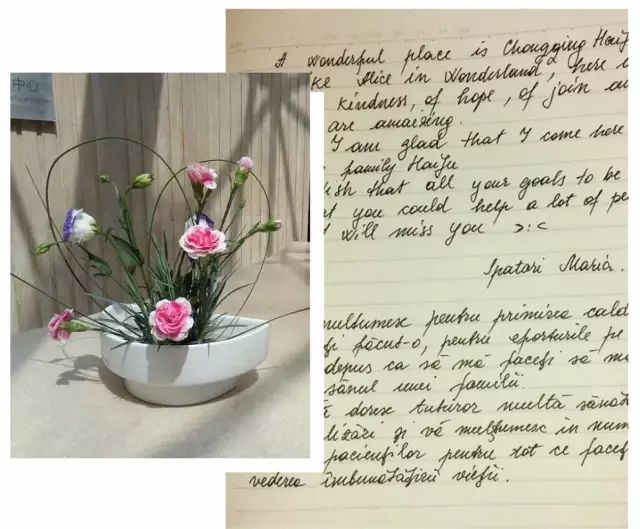 中心
A wonderful place is Chongqing Haifu
Alice in Wonderland, here i
kindness, of hope, of join an
are amaizing.
I am glad that I come here
family Haifu
that all your goals to be
you could help a lot of pe
will miss you >:<
Spatari Maria.
pentru primirea cald
făcut-o, pentru eforturile pe
depus ca să mă faceți să m
sânul unei familii.
doresc tuturor multă sănăt
și vă mulțumesc în num
pacienților pentru tot ce faceț
vederea îmbunătățirii vieții.